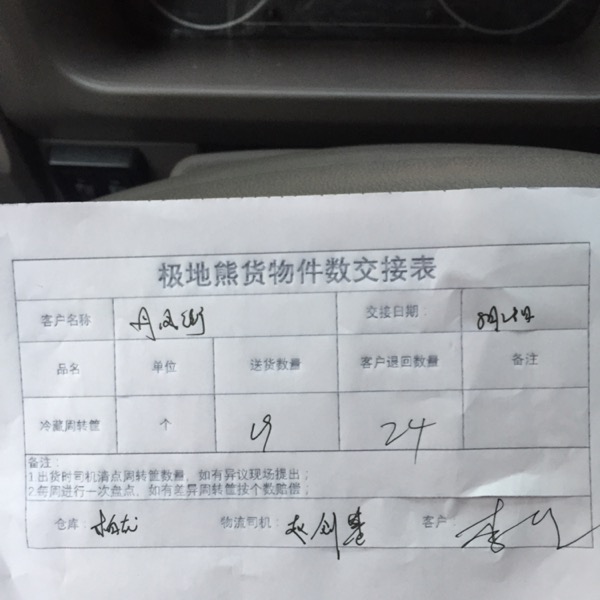 极地熊货物件数交接表
客户名称 丹凤街 交接日期:
品名 单位 送货数量 客户退回数量 备注
冷藏周转筐 个 24
备注:
1.出货时司机清点周转筐数量,如有异议现场提出;
2.每周进行一次盘点,如有差异周转筐按个数赔偿;
仓库: 物流司机: 赵剑基 客户: